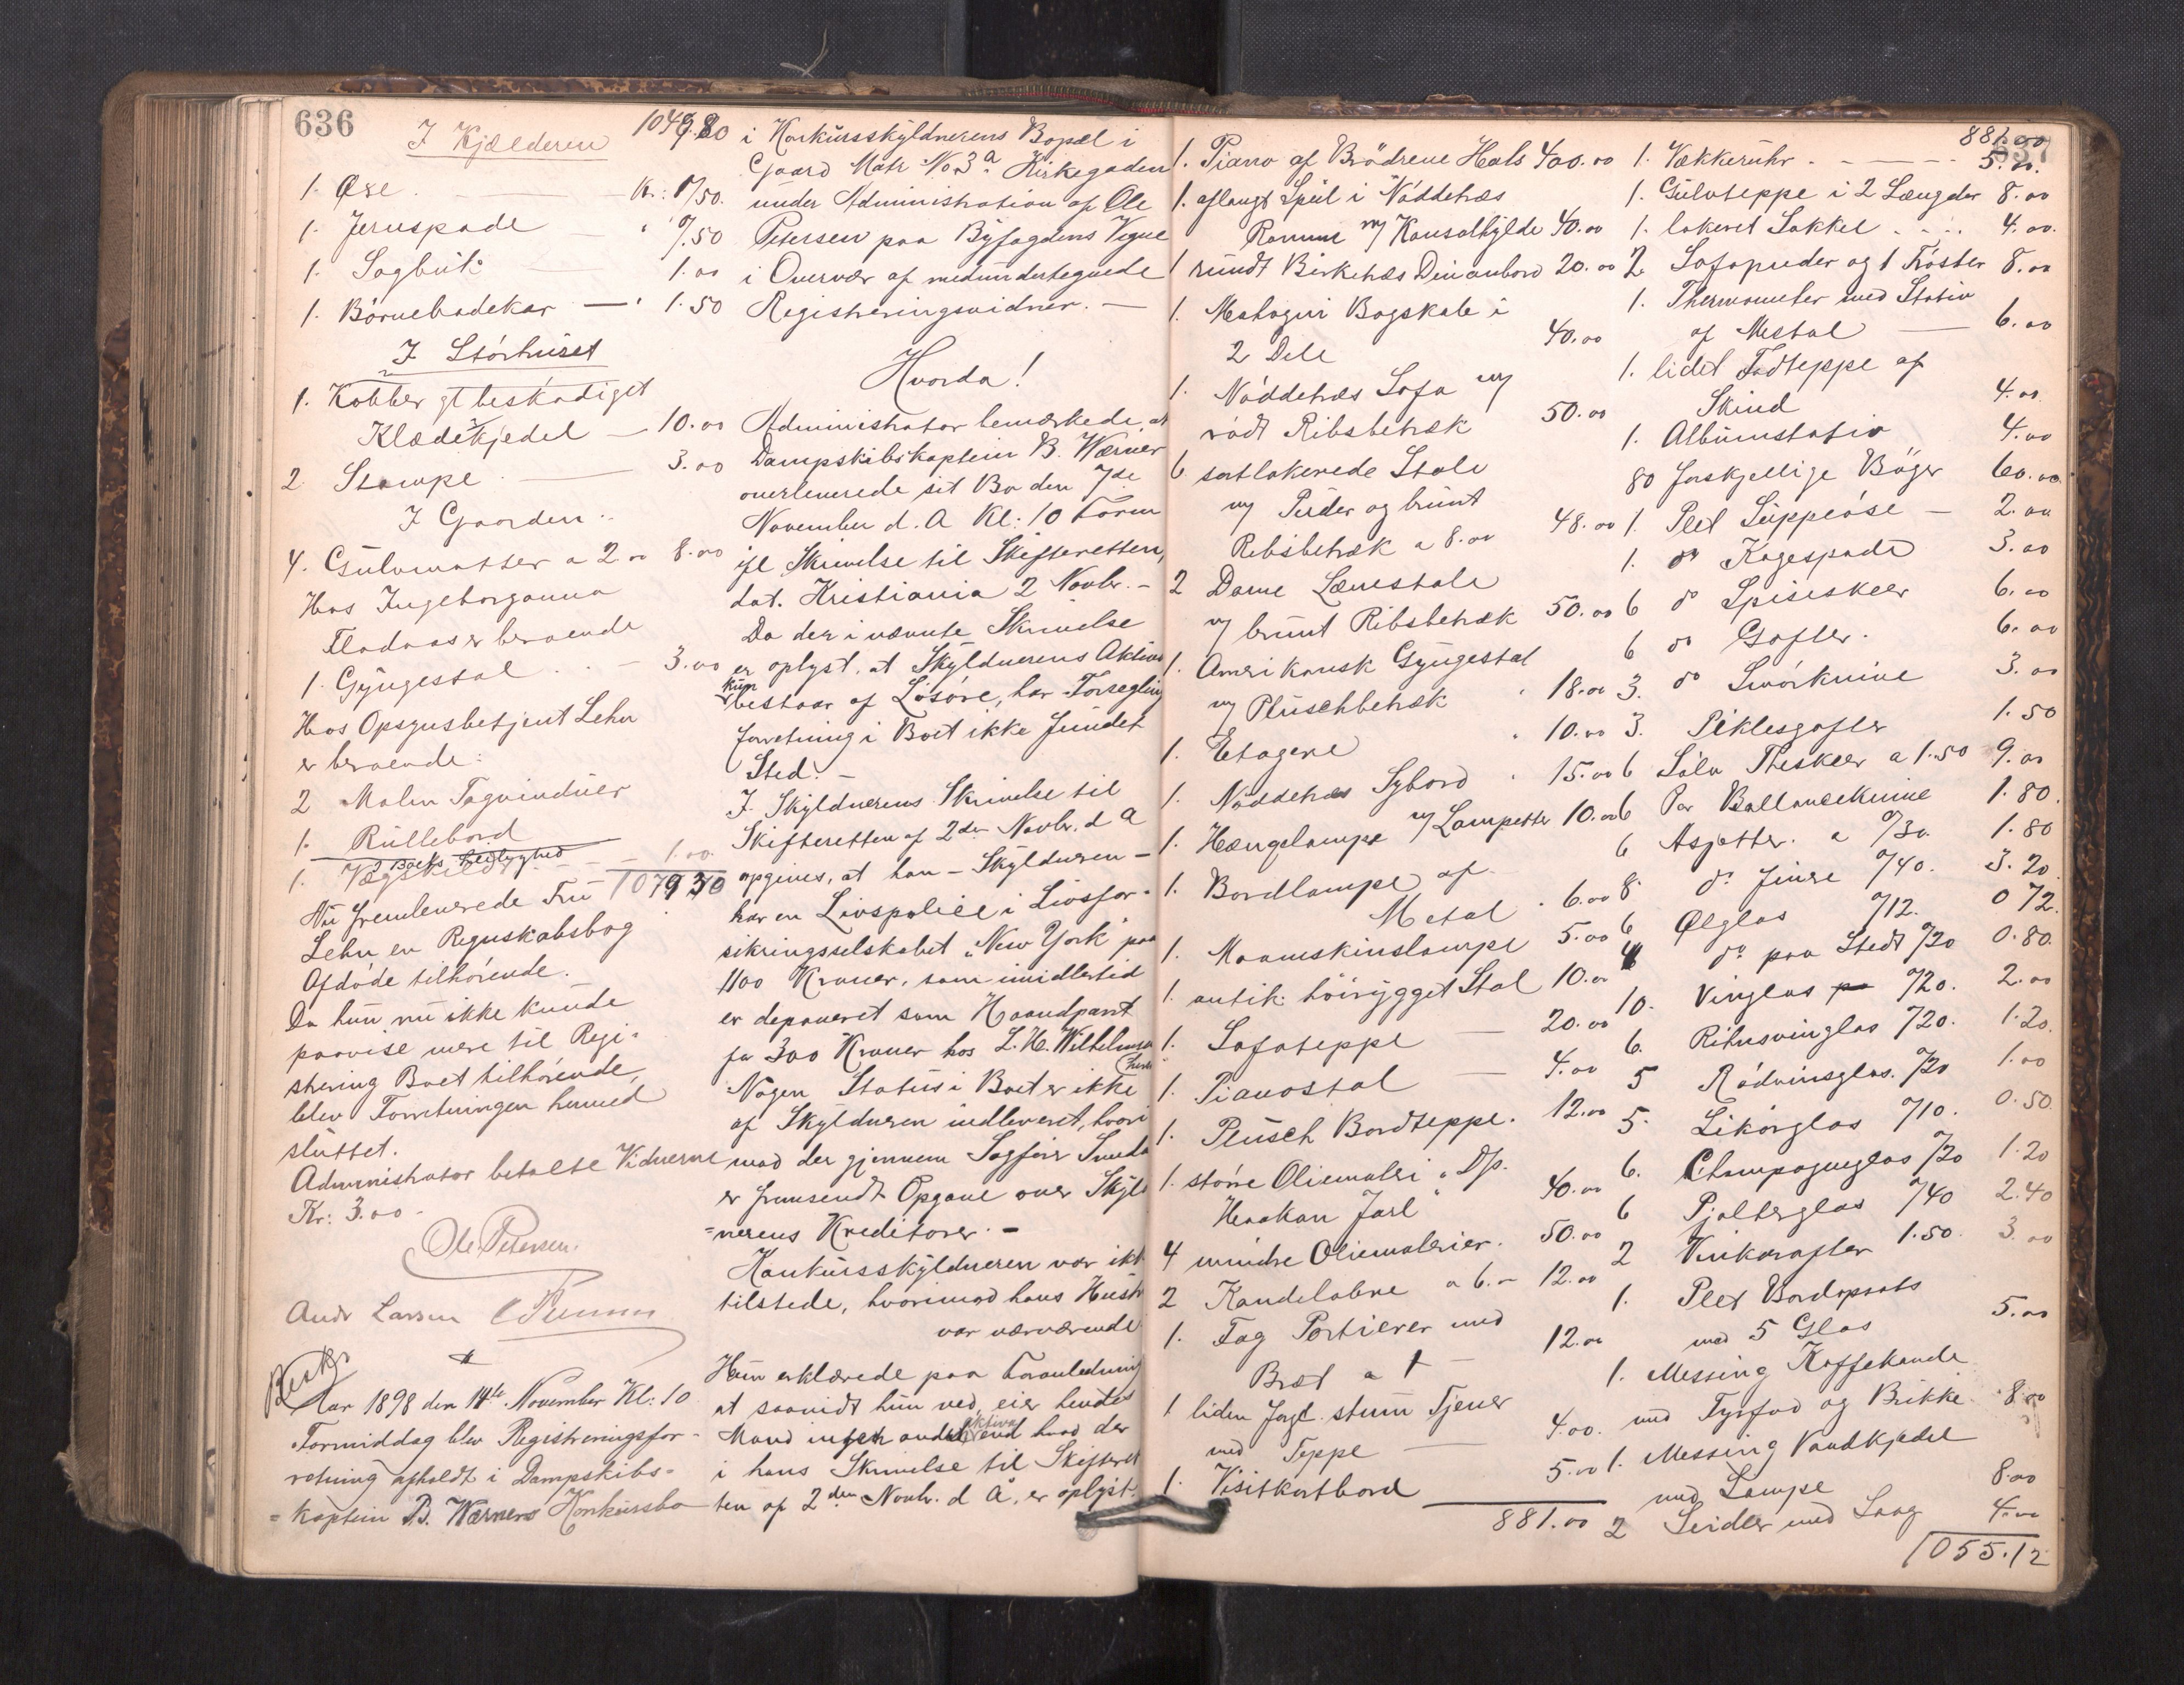 636
I Kjælderen
1049.80
1. Øxe Kr: 0/50.
1. Jernspade " 0/.50
1. Sagbuk 1.00
1. Børnebadekar — " 1.50
I Störhuset
1. Kobber gl beskadiget
Klædekjedel — 10.00
2 Stampe 3.00
I Gaarden.
4. Gulvmatter a 2.00 8.00
Hos Ingeborganna
Fladaas er beroende
1. Gyngestol 3.00
Hos Opsynsbetjent Lehn
er beroende:
2 Malm Tagvinduer
1. Rullebord
2 Bøets Beilighed
1. 1.00.
Nu fremleverede Fru 1079 30
Lehn en Regnskabsbog
Afdøde tilhörende.
Da hun nu ikke kunde
paavise mere til Regi-
strering Boet tilhörende,
blev Forretningen hermed
sluttet.
Administrator betalte Vidnerne
Kr: 3.00.
Ole Petersen.
Andr Larsen
Besk
Aar 1898 den 14de November Kl: 10
Formiddag blev Registreringsfor-
retning afholdt i Dampskibs-
kaptein B. Wærners Konkursbo
i Konkursskyldnerens Bopæl i
Gaard Matr No 3a Kirkegaden
under Administration af Ole
Petersen paa Byfogdens Vegne
i Overvær af medundertegnede
Registreringsvidner. —
Hvorda!
Administrator bemærkede, at
Dampskibskaptein B. Wærner
overleverede sit Bo den 7de
November d. A Kl: 10 Form
ifl Skrivelse til Skifteretten,
dat. Kristiania 2 Novbr. –
Da der i nævnte Skrivelse
er oplyst, at Skyldnerens Aktiva
kun
bestaar af Lösöre, har Forsegling
forretning i Boet ikke fundet
Sted. –
I Skyldnerens Skrivelse til
Skifteretten af 2den Novbr. d A
opgives, at han – Skyldneren –
har en Livspolice i Livsfor-
sikringsselskabet "New York" paa
1100 Kroner, som imidlertid
er deponeret som Haandpant
for 300 Kroner hos L. H. Wilhelmsen
heri
Nogen Status i Boet er ikke
af Skyldneren indleveret, hvori
mod der gjennem Sagförer Smeda
er fremsendt Opgave over Skyld
=nerens Kreditorer. –
Konkursskyldneren var ikke
tilstede, hvorimod hans Hustr
var nærværende
Hun erklærede paa Foranledning
at saavidt hun ved, eier hendes
aktiva
Mand ingen andet end hvad der
i hans Skrivelse til Skifteret
ten af 2den Novbr. d A, er oplyst.
637
1. Piano af Brødrene Hals 400.00
1. aflangt Speil i Nöddetræs
Ramme m/ Konsolhylde 40.00
1 rundt Birketræs Divanbord 20.00
1. Mahogni Bogskab i
2 Dele 40.00
1. Nöddetræs Sofa m/
rödt Ribsbetræk 50.00
6 sortlakerede Stole
m/ Puder og brunt
Ribsbetræk a 8.00 48.00
2 Dame Lænestole
m/ brunt Ribsbetræk 50.00
1. Amerikansk Gyngestol
m/ Pluschbetræk " 18.00
1. Etagere " 10.00
1. Nöddetræs Sybord " 15.00
1. Hængelampe m/ Lampetter 10.00
1. Bordlampe af
Metal " 6.00
1. Maaneskinslampe 5.00
1. antik höirygget Stol 10.00
1. Sofateppe — 20.00
1. Pianostol — 4.00
1. Plusch Bordteppe. 12.00
1. större Oliemaleri "D/s.
Haakon Jarl" 40.00
4 mindre Oliemalerier. 50.00
2 Kandelabre a 6.– 12.00
1. Fag Portierer med
Bræt a 12.00
1 liden forgl. stum Tjener
med Teppe — 4.00.
1. Visitkortbord 5.00
881.00
881.00
1. Vækkeruhr - - — - - 5.00.
1. Gulvteppe i 2 Længder 8.00
1. lakeret Sokkel . . . . 4.00.
2. Sofapuder og 1 Trøster 8.00
1. Thermometer med Stativ
af Mestal — 6.00
1. lidet Fodteppe af
Skind 4.00
1. Albumstativ 4.00
80 forskjellige Böger 60.00
1. Plet Suppeöse – 2.00
1. do Kagespade 3.00
6 do Spiseskeer 6.00
6 do Gafler. 6.00
3. do Smörknive 3.00
3. Piklesgafler 1.50
6 Sölv Theskeer a 1.50 9.00
6 Par Ballanceknive 1.80.
6 Asjetter. a 0/30. 1.80
8 do finere 0/40. 3.20
6 Ølglas 0/12. 0 72.
4 do paa Stedt 0/20 0.80.
10. Vinglas 0/20. 2.00
6. Rihnsvinglas 0/20. 1.20.
5 Rödvinsglas. 0/20 1.00
5. Likörglas 0/10. 0.50.
6. Champagneglas 0/20 1.20
6 Pjolterglas 0/40 2.40
2 Vinkarafler 1.50. 3.00
1. Plet Bordopsats
med 5 Glas 5.00
1. Messing Kaffekande
med Fyrfad og Brikke 8.00
1. Messing Vandkjedel
med Lampe 8.00
2 Seidler med Laag 4.00
1055.12